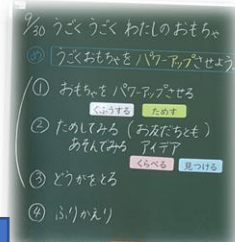 9/30 うごくうごく わたしのおもちゃ
うごくおもちゃを パワーアップさせよう
① おもちゃを パワーアップさせる
くふうする ためす
② ためしてみる (お友だちとも)
あそんでみる アイデア
くらべる 見つける
③ どうがをとる
④ ふりかえり